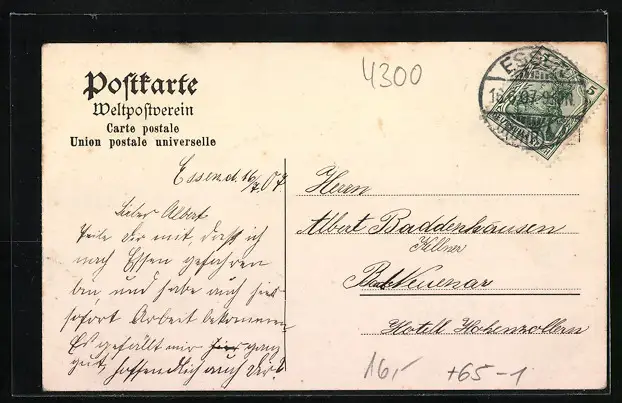 Postkarte
Weltpostverein
Carte postale
Union postale universelle
4300
ESSEN
5
Essen d. 16/7 07.
Lieber Albert
Teile Dir mit, daß ich
nach Essen gefahren
bin, und habe auch hier
sofort Arbeit bekommen
Es gefällt mir hier ganz
gut, hoffendlich auch Dir?
Herrn
Albert Baddenhausen
Kellner
Bad Neuenar
Hotell Hohenzollern
16,-
+65-1